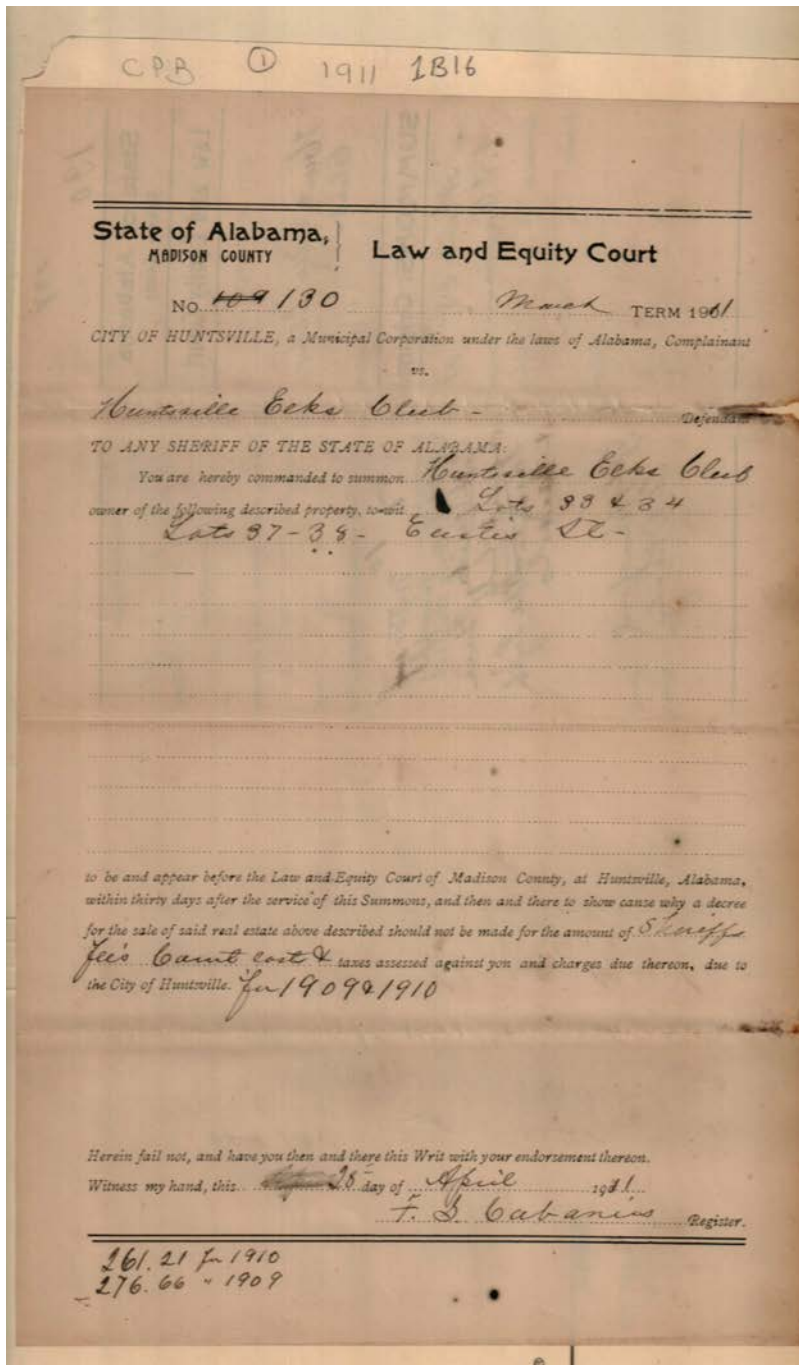 CPB ① 1911 1B16
State of Alabama,
MADISON COUNTY
Law and Equity Court
No. 109 130 March TERM 1911
CITY OF HUNTSVILLE, a Municipal Corporation under the laws of Alabama, Complainant
vs.
Huntsville Elks Club - Defendant
TO ANY SHERIFF OF THE STATE OF ALABAMA:
You are hereby commanded to summon Huntsville Elks Club
owner of the following described property, to-wit Lots 33 & 34
Lots 37-38- Eustis St-
to be and appear before the Law and Equity Court of Madison County, at Huntsville, Alabama,
within thirty days after the service of this Summons, and then and there to show cause why a decree
for the sale of said real estate above described should not be made for the amount of Sheriffs
fee's Court cost & taxes assessed against you and charges due thereon, due to
the City of Huntsville. for 1909 & 1910
Herein fail not, and have you then and there this Writ with your endorsement thereon.
Witness my hand, this 28 day of April 1911
F. G. Cabaniss Register.
261.21 for 1910
276.66 " 1909